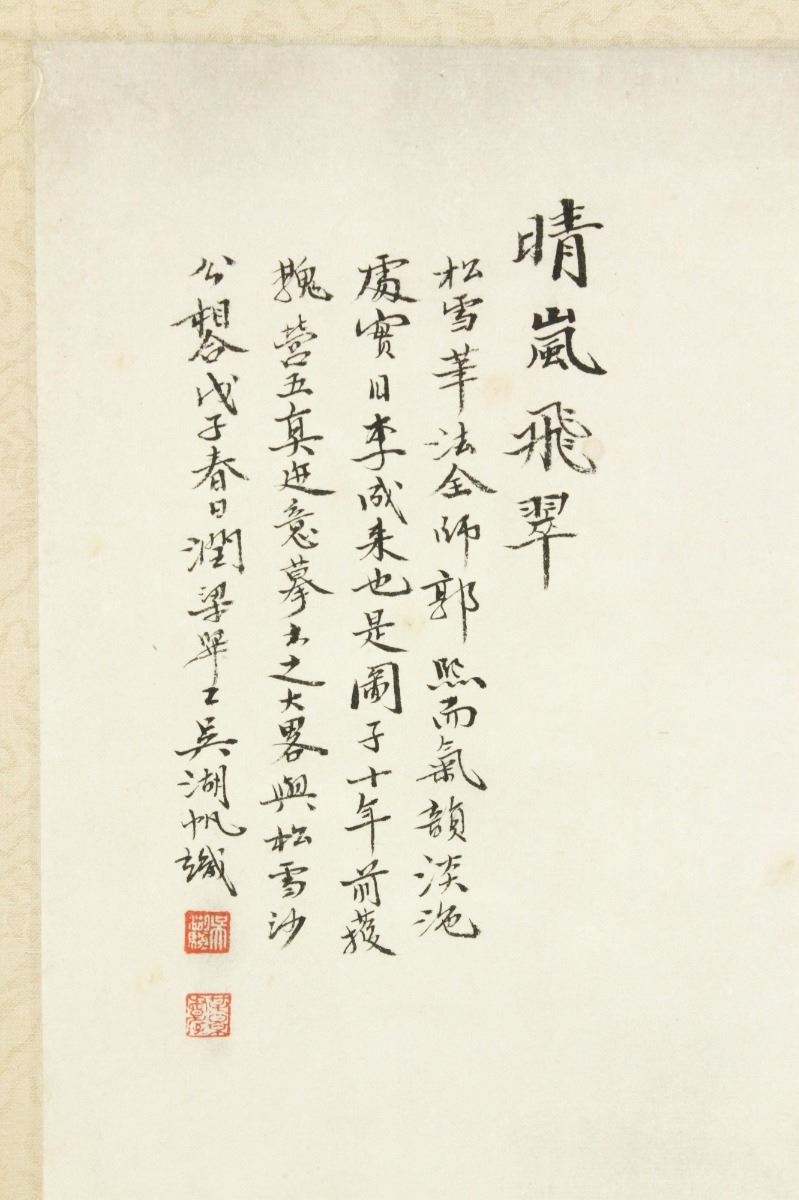 晴嵐飛翠
松雪筆法全師郭熙而氣韻淡沲
處實自李成来也是圖子十年前獲
觀營五真迹意摹出之大畧與松雪沙
公想畧戊子春日潤梁畢工吳湖帆識